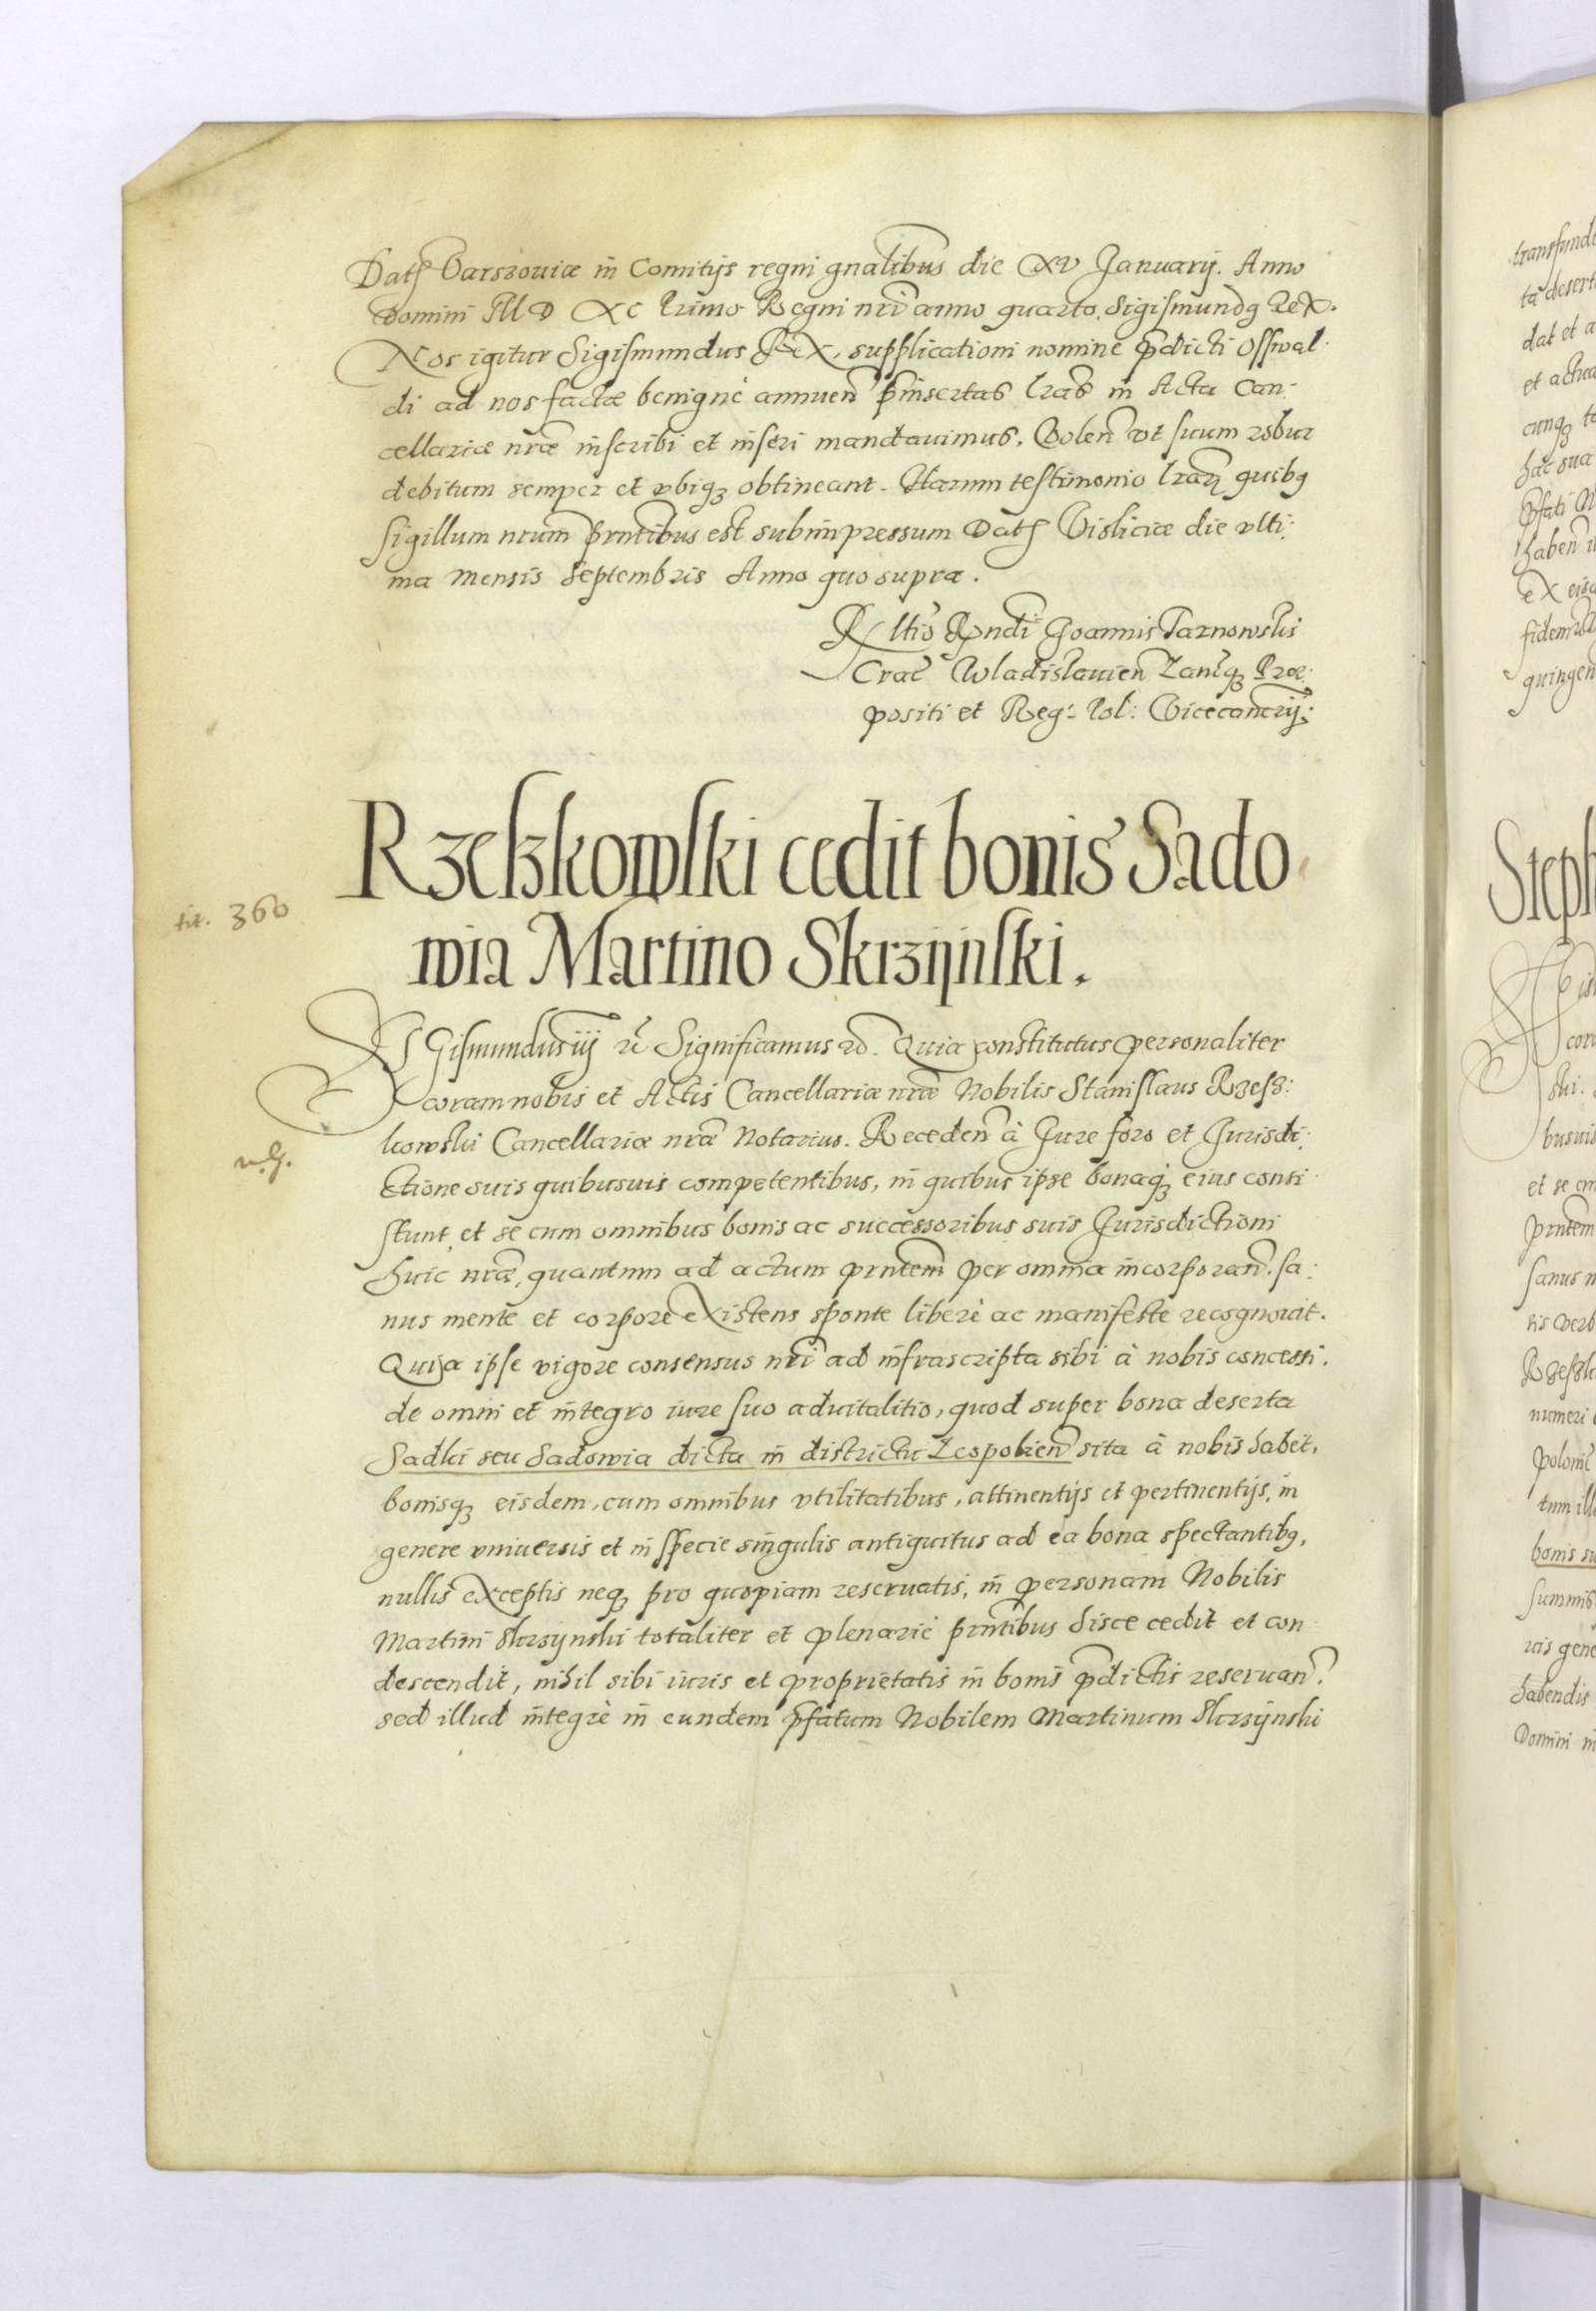 Dat͠ Varszoviæ in Comitijs regni gnalibus die XV Januarij. Anno
Domini M D XC Primo Regni nri anno quarto. Sigismundq Rex.
Nos igitur Sigismundus Rex, supplicationi nomine p̄dicti Osswal-
di ad nos factæ benignè annuen̄ p̄insertas l̄ras in Acta Can-
cellariæ nr̄æ inscribi et inseri mandauimus. Volen̄ vt suum robur
debitum semper et vbiqꝫ obtineant. Harum testimonio l̄raꝝ quibq
sigillum nr̄um prn̄tibus est subimpressum Dat͠ Visliciæ die vlti:
ma mensis Septembris Anno quo supra.
Rltio Rn̄di Joannis Tarnowski
Crac̄ Wladislauien̄ Lancꝫ Præ:
positi et Reg: Pol: Vicecancrij:
Rzeszkowski cedit bonis Sado
wia Martino Skrzijnski.
SIgismundus iij rc̄ Significamus rc̄. Quia constitutus personaliter
coram nobis et Actis Cancellariæ nr̄æ Nobilis Stanislaus Rzess:
kowski Cancellariæ nr̄æ Notarius. Receden̄ à Jure foro et Jurisdi:
ctione suis quibusuis competentibus, in quibus ipse bonaqꝫ eius consi
stunt, et se cum omnibus bonis ac successoribus suis Jurisdictioni
huic nr̄æ, quantum ad actum prn̄tem per omnia incorporan̄. sa:
nus mente et corpore existens sponte liberè ac manifestè recognouit.
Quia ipse vigore consensus nri ad infrascripta sibi à nobis concessi.
de omni et integro iure suo aduitalitio, quod super bona deserta
Sadki seu Sadowia dicta in districtu Leopolien̄ sita à nobis habet,
bonisqꝫ eisdem, cum omnibus vtilitatibus, attinentijs et pertinentijs, in
genere vniuersis et in specie singulis antiquitus ad ea bona spectantibq,
nullis exceptis neqꝫ pro quopiam reseruatis, in personam Nobilis
Martini Skrzynski totaliter et plenariè prn̄tibus hisce cedit et con
descendit, nihil sibi iuris et proprietatis in bonis p̄dictis reseruan̄.
sed illud integrè in eundem p̄fatum Nobilem Martinum Skrzijnski
tit. 360